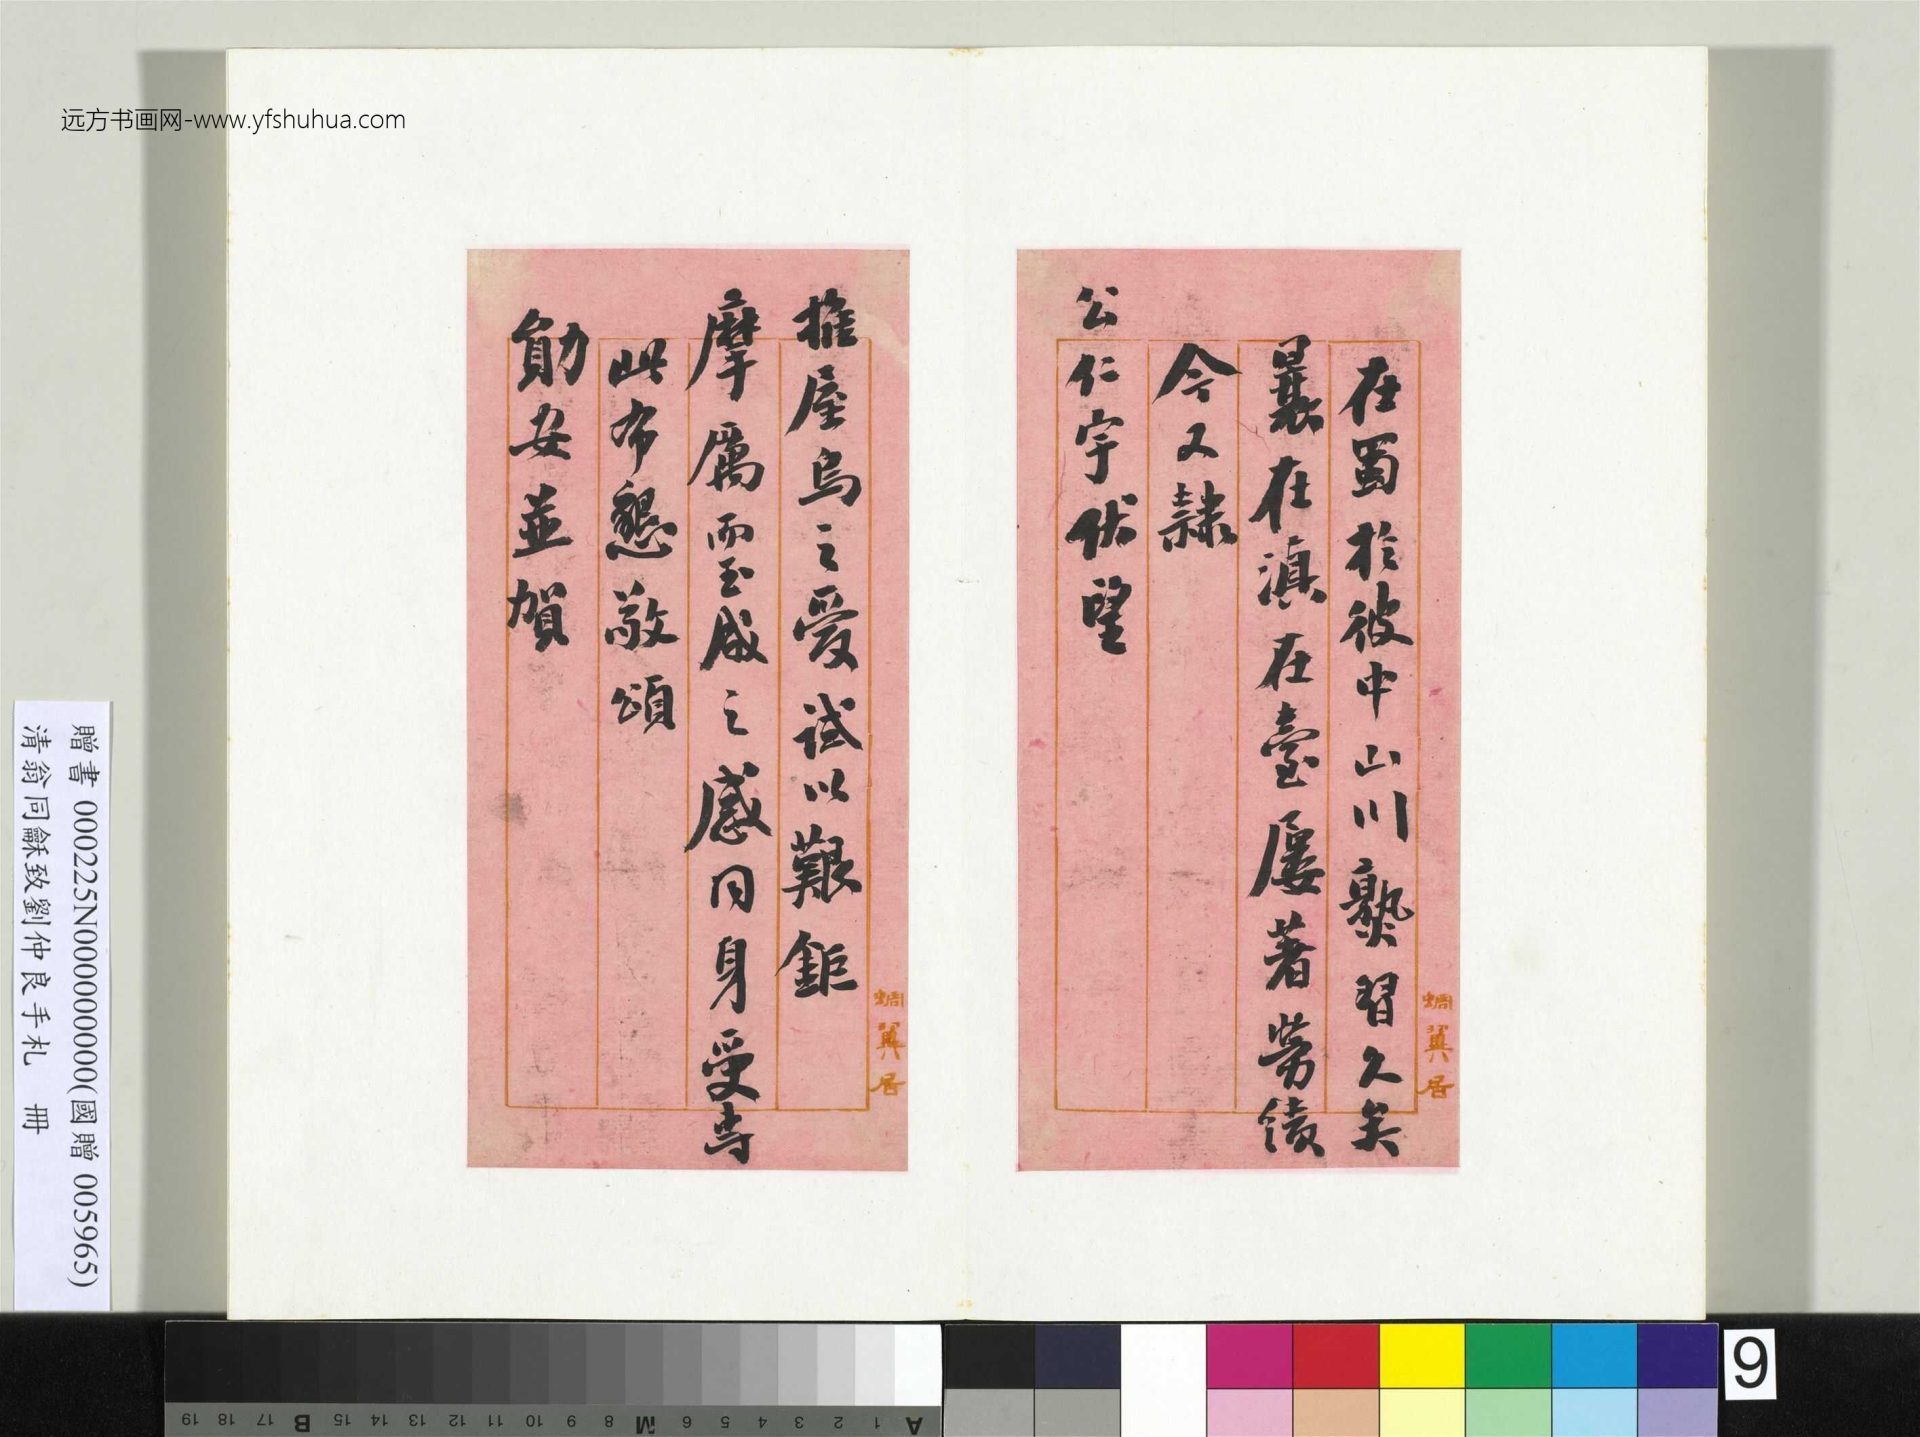 远方书画网-www.yfshuhua.com
在蜀於彼中山川熟習久矣
曩在滇在臺屢著勞績
今又隸
公仁宇伏望
蜩翼居
推屋烏之愛試以艱鉅
摩厲而玉成之感同身受專
此布懇敬頌
勛安並賀
蜩翼居
贈書 000225N000000000(國贈 005965)
清翁同龢致劉仲良手札 冊
9
A 1 2 3 4 5 6 M 8 9 10 11 12 13 14 15 B 17 18 19